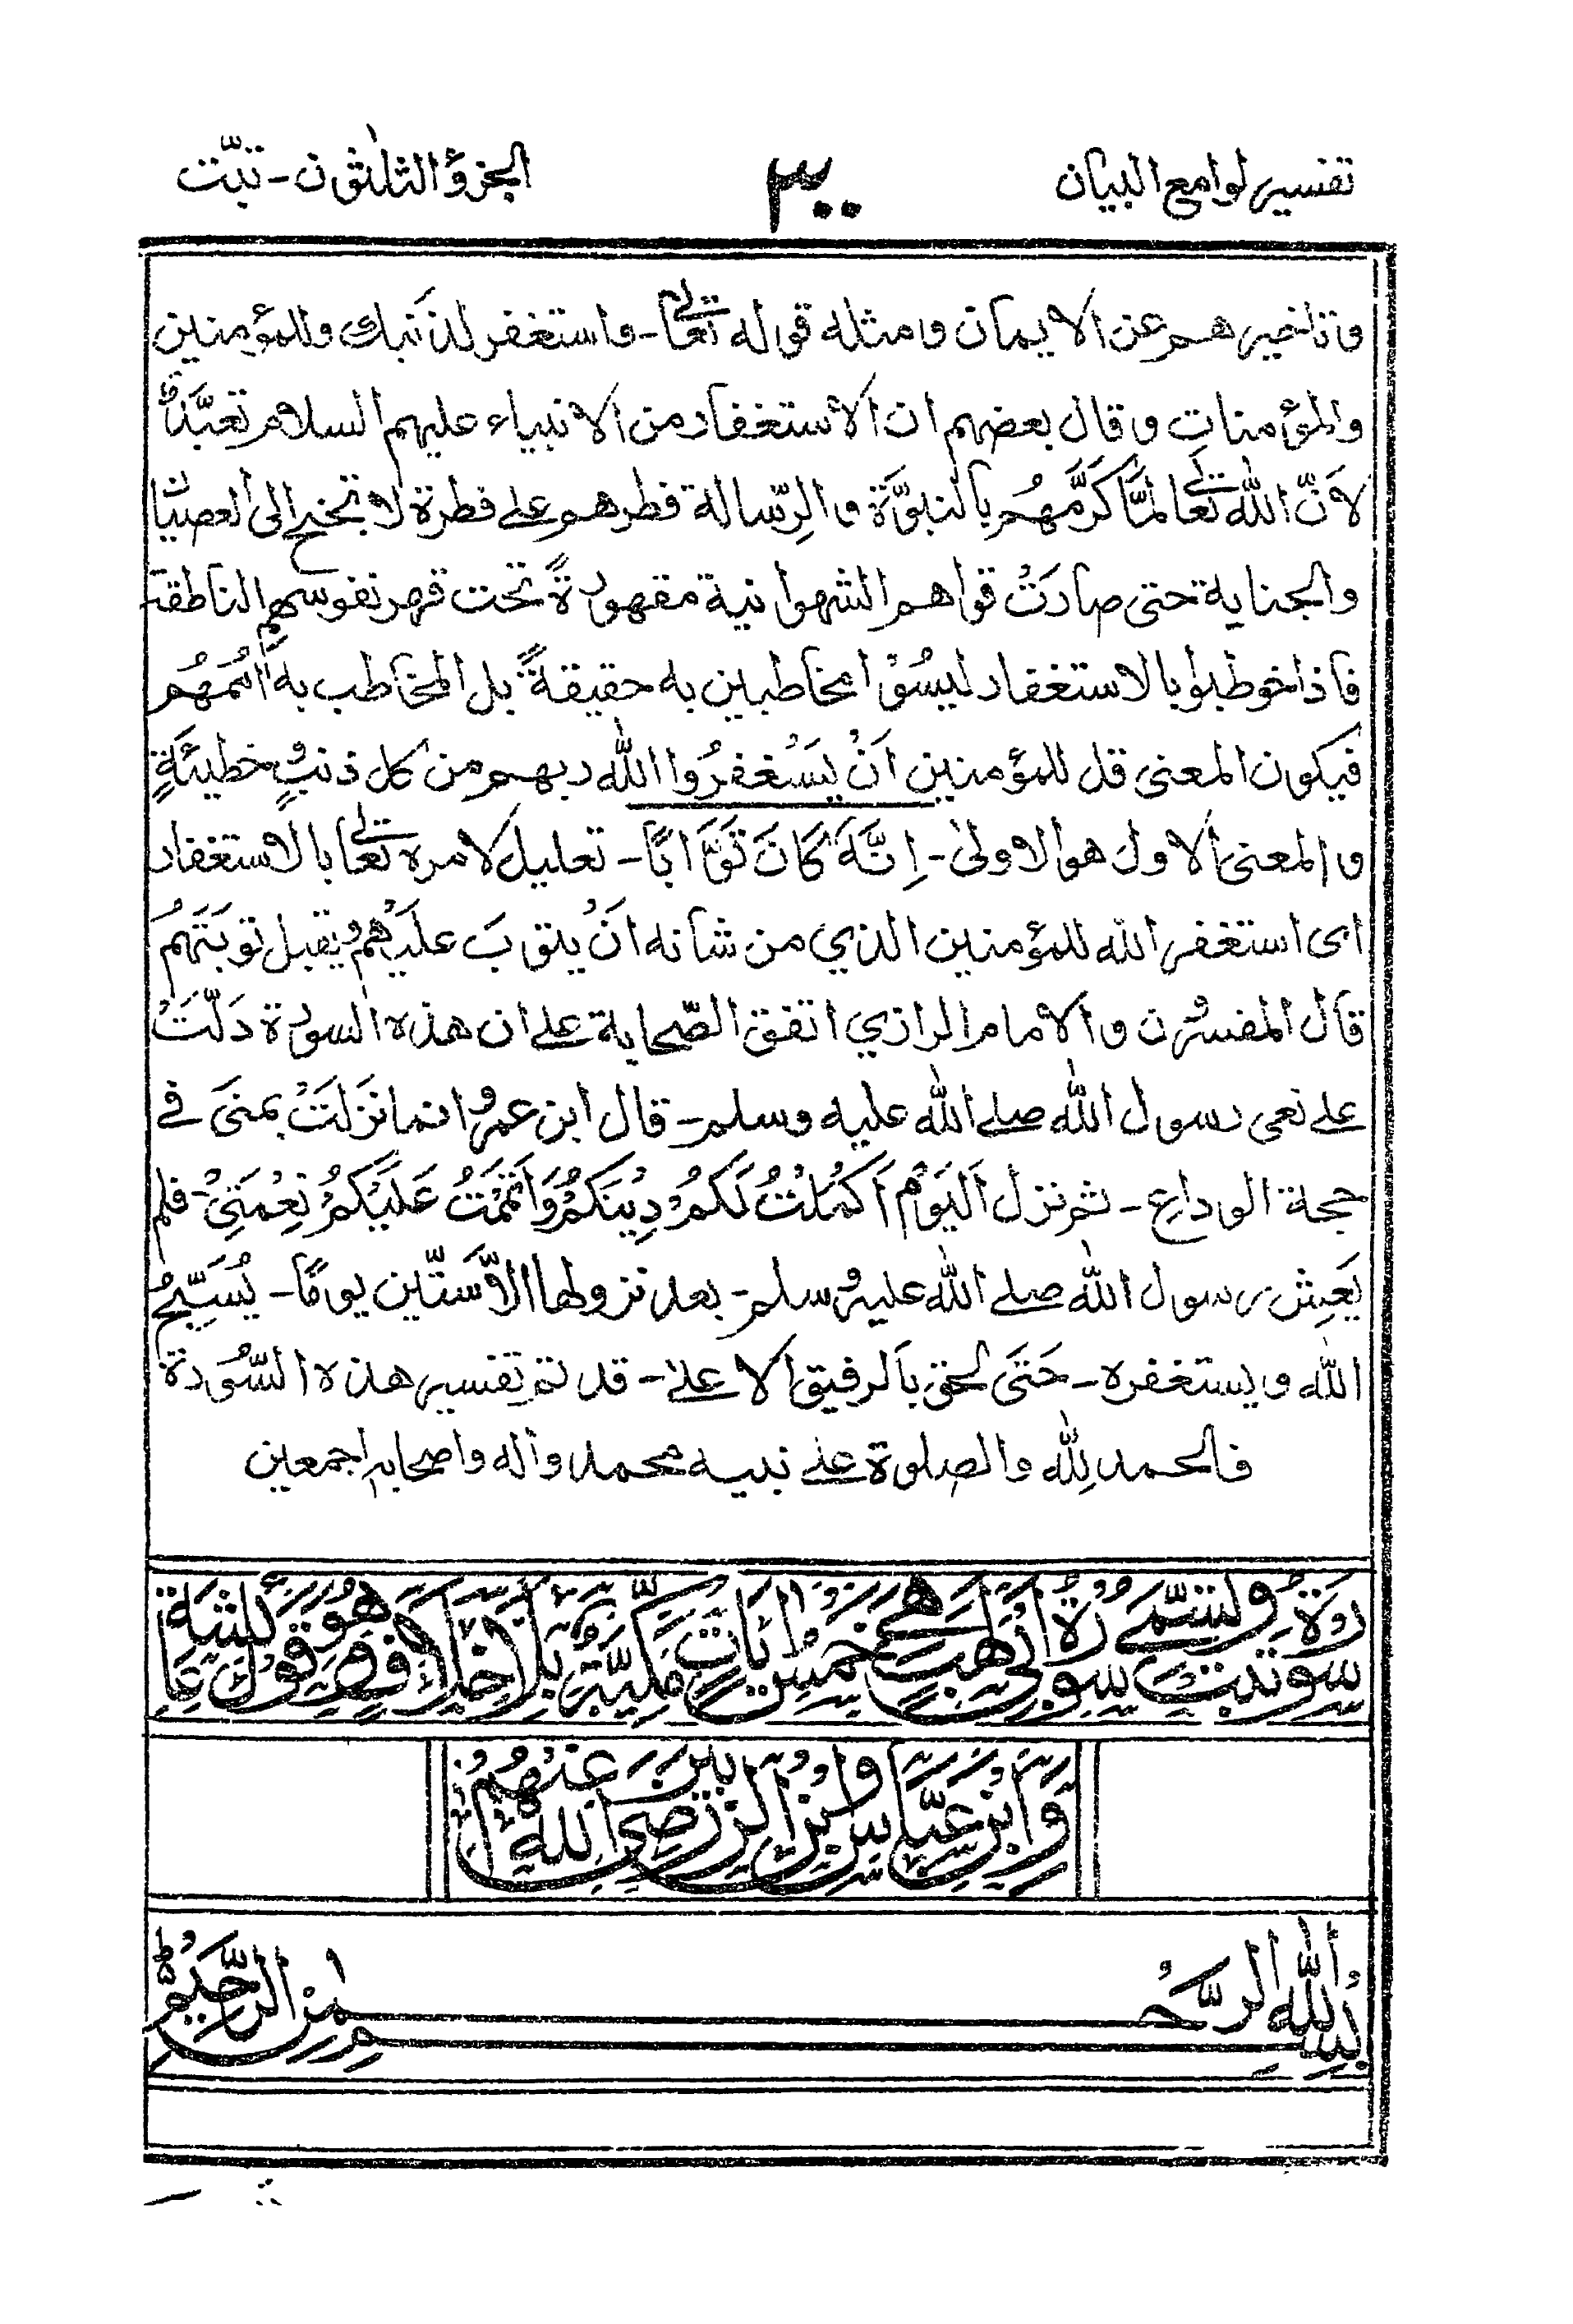 تفسير لوامع البيان ٣٠٠ الجزؤ الثلثون - تبّت
وتاخيرهم عن الايمان ومثله قوله تعالى - واستغفر لذنبك وللمؤمنين
والمؤمنات وقال بعضهم ان الاستغفار من الانبياء عليهم السلام تعبّداً
لانّ الله تعالى لمّا كرّمهم بالنبوّة والرّسالة فطرهم على فطرة لا تجنح الى العصيان
والجناية حتى صارتْ قواهم الشهوانية مقهورةً تحت قهر نفوسهم الناطقة
فاذا خوطبوا بالاستغفار ليسُوْا مخاطبين به حقيقةً بل المخاطب به اُممهُم
فيكون المعنى قل للمؤمنين اَنْ يَسْتغفرُوا الله ربهم من كل ذنبٍ وخطيئةٍ
والمعنى الاول هو الاولى - اِنَّهٗ كَانَ تَوَّابًا - تعليل لامره تعالى بالاستغفار
اى استغفر الله للمؤمنين الذي من شانه انْ يتوبَ عليْهمْ ويقبل توبتَهمْ
قال المفسرون والامام الرازي اتفق الصّحابة على ان هذه السورة دَلّتْ
على نعى رسول الله صلى الله عليه وسلم - قال ابن عمرو انما نزلتْ بمنىَ فى
حجة الوداع - ثم نزل اَلْيَوْمَ اَكْمَلْتُ لَكُمْ دِيْنَكُمْ وَاَتْمَمْتُ عَلَيْكُمْ نِعْمَتِىْ - فلم
يَعِش رسول الله صلى الله عليه وسلم - بعد نزولها الاّ ستّين يومًا - يُسَبِّحُ
الله ويستغفره - حَتىَّ لحق بالرفيق الاعلى - قد تم تفسير هذه السّورة
فالحمد لله والصلوة على نبيه محمد وآله واصحابه اجمعين
سورة تبت وتسمى سورة ابى لهب هى خمس ايات مكية بلا خلاف وهو قول عائشة
وابن عباس وابن الزبير رضى الله عنهم
بسم الله الرحمن الرحيم